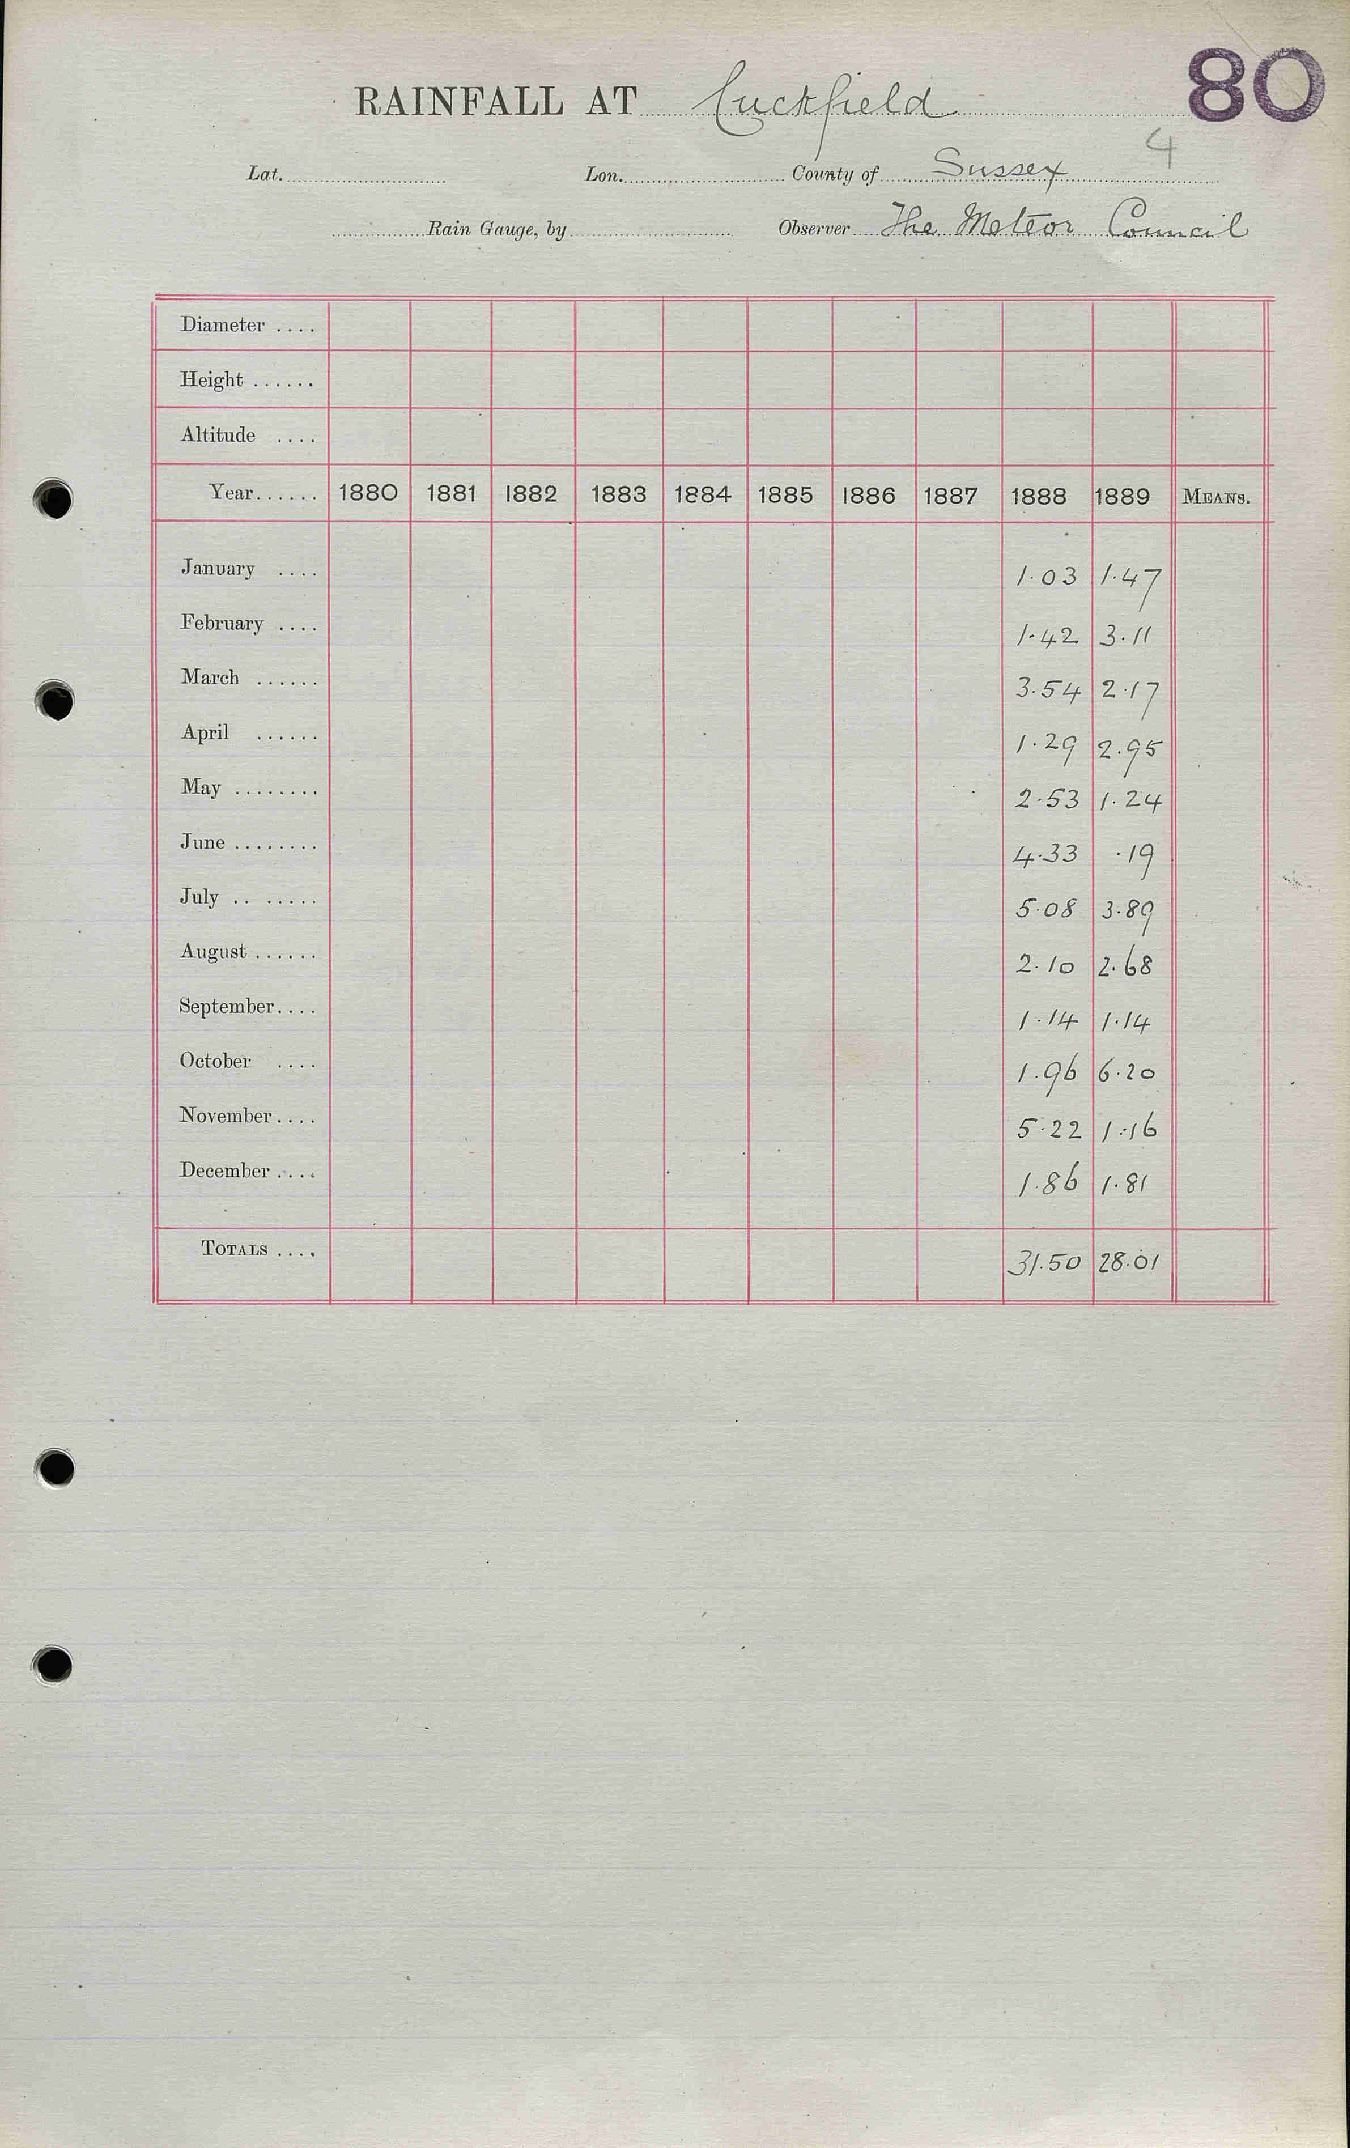 80
RAINFALL AT Cuckfield
4
Lat. Lon. County of Sussex
Rain Gauge, by Observer The Meteor Council
Diameter ....
Height ......
Altitude ....
Year ...... 1880 1881 1882 1883 1884 1885 1886 1887 1888 1889 MEANS.
January .... 1.03 1.47
February .... 1.42 3.11
March ...... 3.54 2.17
April ...... 1.29 2.95
May ........ 2.53 1.24
June ........ 4.33 .19
July .. ..... 5.08 3.89
August ...... 2.10 2.68
September.... 1.14 1.14
October .... 1.96 6.20
November.... 5.22 1.16
December .... 1.86 1.81
TOTALS .... 31.50 28.01